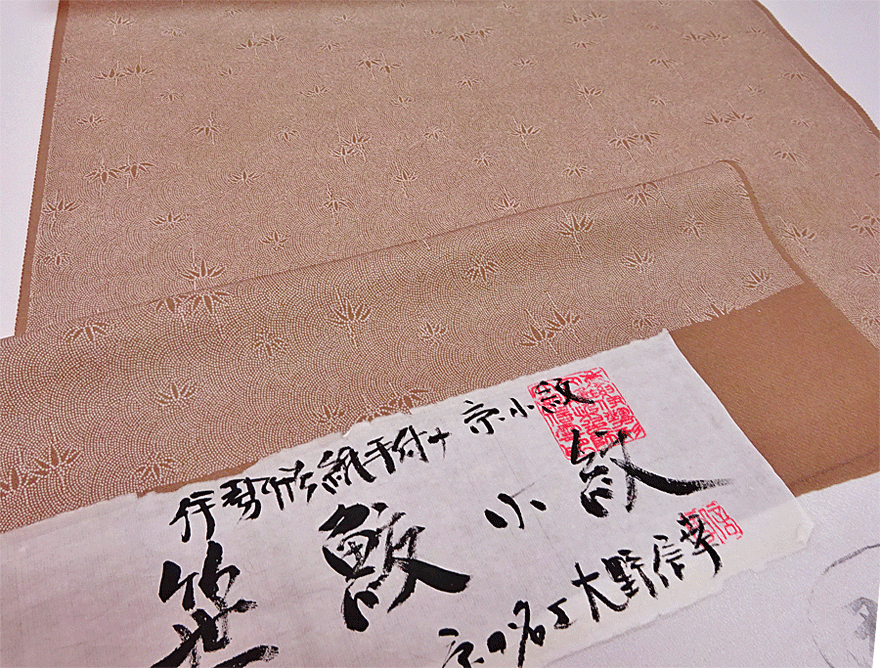 伊勢形紙手付け 京小紋
笹鮫小紋
京の名工大野信幸